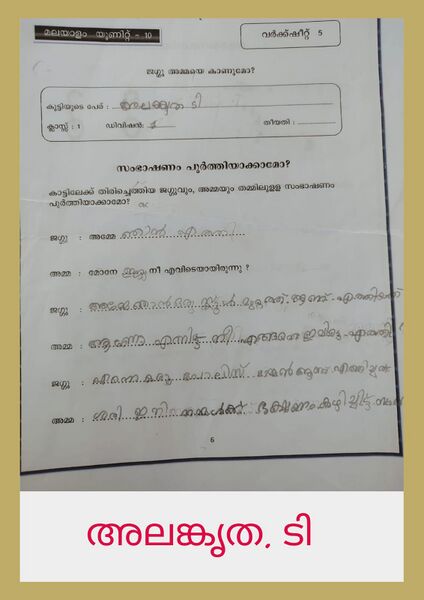 മലയാളം യൂണിറ്റ് - 10
വർക്ക്ഷീറ്റ് 5
ജഗ്ഗു അമ്മയെ കാണുമോ?
കുട്ടിയുടെ പേര് : അലങ്കൃത ടി
ക്ലാസ്സ് : 1 ഡിവിഷൻ: തീയതി :
സംഭാഷണം പൂർത്തിയാക്കാമോ?
കാട്ടിലേക്ക് തിരിച്ചെത്തിയ ജഗ്ഗുവും, അമ്മയും തമ്മിലുളള സംഭാഷണം
പൂർത്തിയാക്കാമോ?
ജഗ്ഗു : അമ്മേ ഞാൻ എത്തി
അമ്മ : മോനേ ജഗ്ഗു നീ എവിടെയായിരുന്നു ?
ജഗ്ഗു : അമ്മേ ഞാൻ ഒരു സ്കൂൾ മുറ്റത്ത് ആണ് എത്തിയത്
അമ്മ : ആണോ എന്നിട്ടു നീ എങ്ങനെ ഇവിടെ എത്തി
ജഗ്ഗു : എന്നെ ഒരു പോലിസ് ആണ്
അമ്മ : ശരി ഇനി നമ്മൾക്ക് ഭക്ഷണം കഴിച്ചിട്ട്
6
അലങ്കൃത. ടി